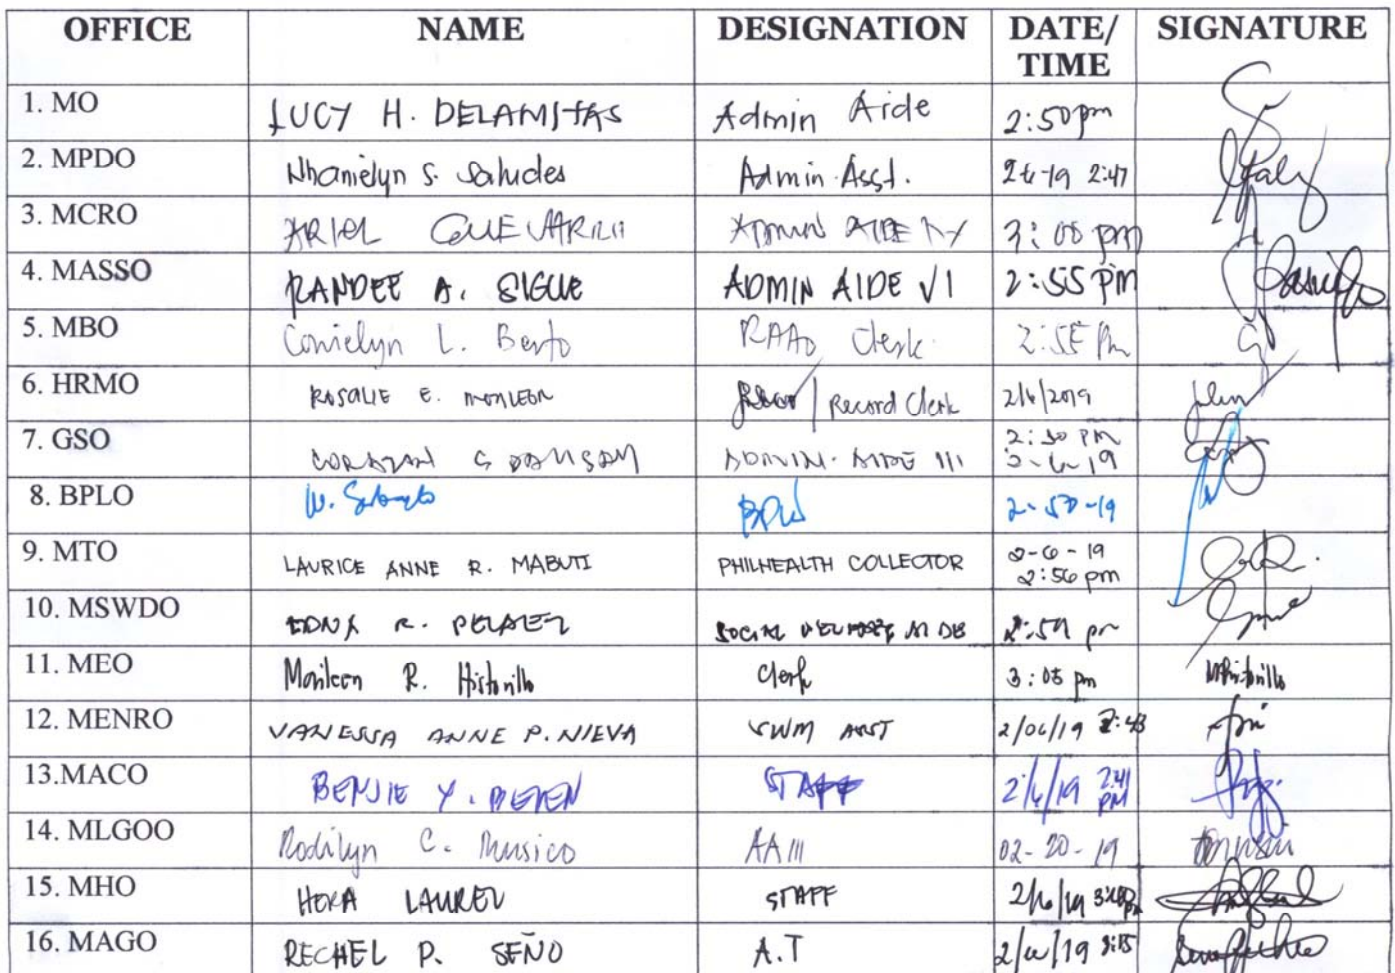 OFFICE NAME DESIGNATION DATE/ TIME SIGNATURE
1. MO LUCY H. DELAMITAS Admin Aide 2:50pm
2. MPDO Nhanielyn S. Saludes Admin. Asst. 2-6-19 2:47
3. MCRO ARIEL Admin AIDE 3:00 pm
4. MASSO RANDEE A. SIGUE ADMIN AIDE VI 2:55 PM
5. MBO Conielyn L. Berto Clerk 2:55 Pm
6. HRMO ROSALIE E. MONLEON Record Clerk 2/6/2019
7. GSO CORAZON G ADMIN. AIDE III 2:50 PM
2-6-19
8. BPLO W. 2:50-19
9. MTO LAURICE ANNE R. MABUTI PHILHEALTH COLLECTOR 2-6-19
2:56 pm
10. MSWDO EDNA R. PELAEZ SOCIAL WELFARE AIDE 2:59 pm
11. MEO Marileen R. Historillo Clerk 3:05 pm
12. MENRO VANESSA ANNE P. NIEVA SWM ASST 2/06/19 2:43
13.MACO BENJIE Y. STAFF 2/6/19 2:41 PM
14. MLGOO Rodilyn C. Musico AA III 02-20-19
15. MHO HERA LAUREL STAFF 2/6/19
16. MAGO RECHEL P. SEÑO A.T 2/6/19 3:15